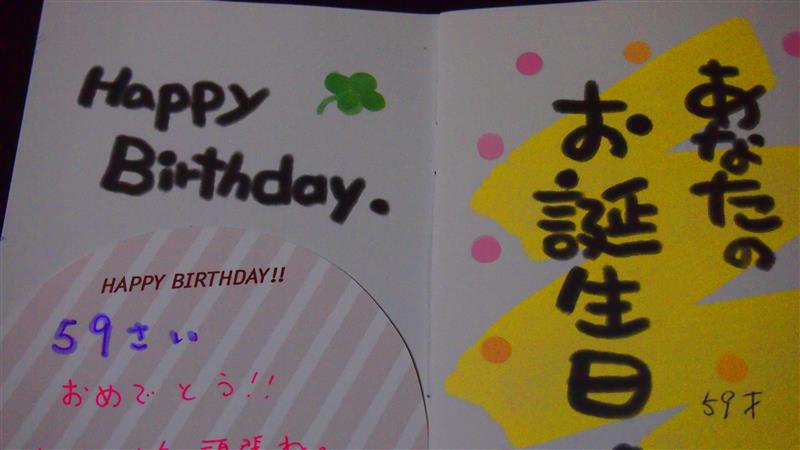 Happy
Birthday.
HAPPY BIRTHDAY!!
59さい
おめでとう!!
頑張れ
あなたの
お誕生日
59才